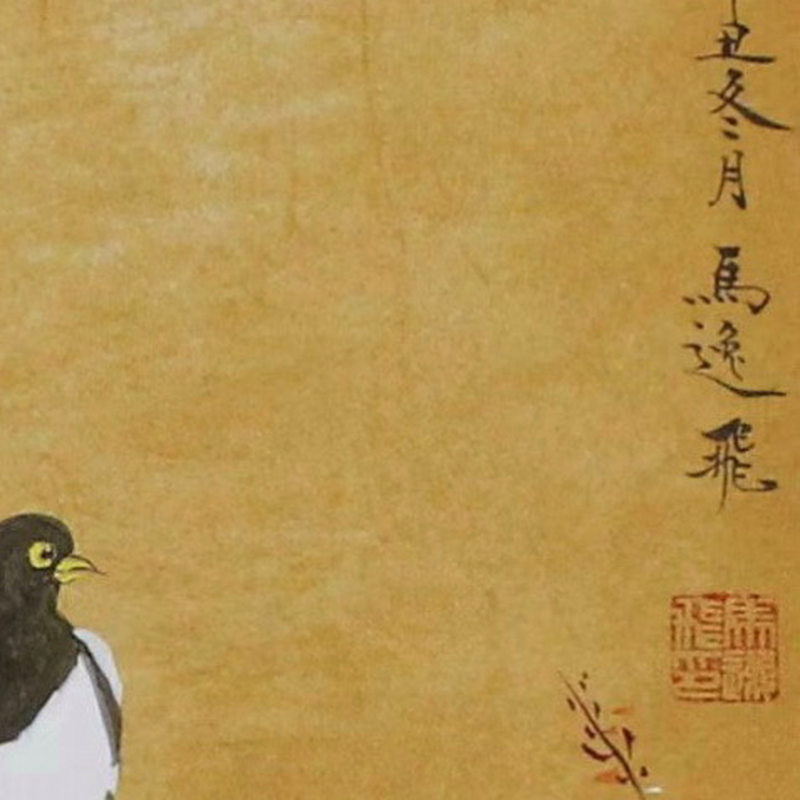 丑冬月馬逸飛